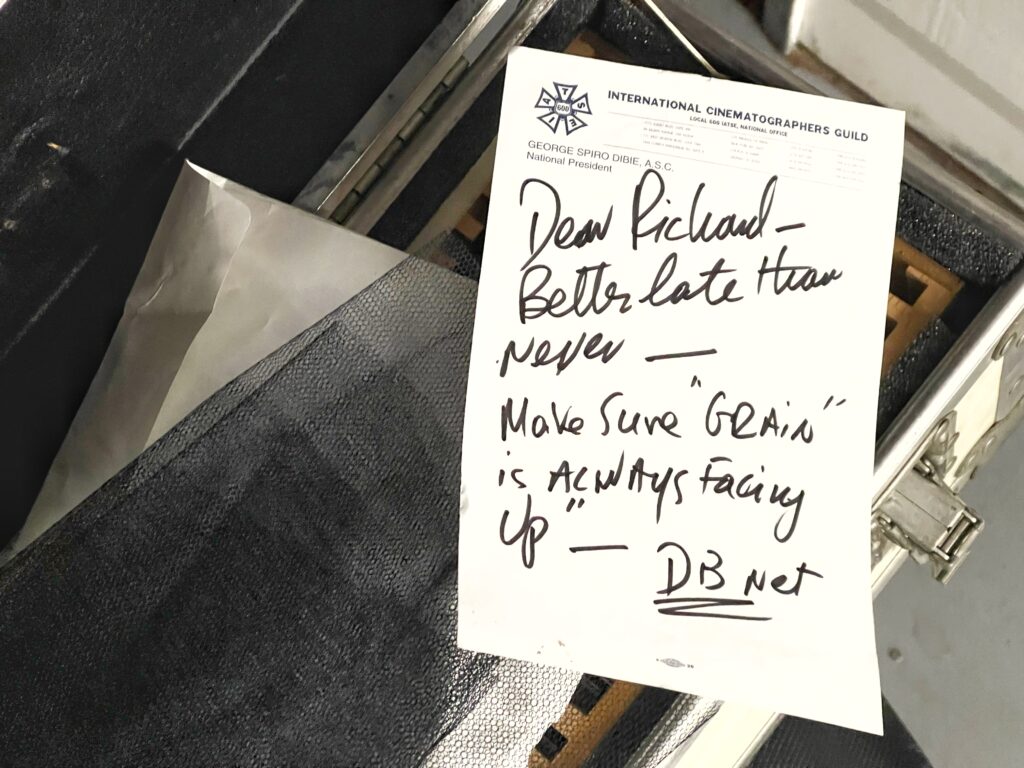 IATSE
600
INTERNATIONAL CINEMATOGRAPHERS GUILD
LOCAL 600 IATSE, NATIONAL OFFICE
GEORGE SPIRO DIBIE, A.S.C.
National President
Dear Richard —
Better late than
never —
Make Sure "GRAiN"
is ALWAYS Facing
Up" —
DB Net